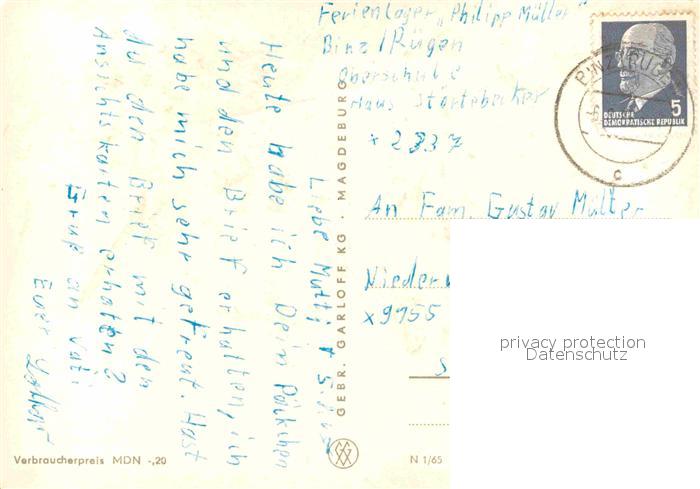 Ferienlager „Philipp Müller"
Binz/Rügen
Oberschule
Haus Störtebecker
x 2337
Liebe Mutti!
Heute habe ich Dein Päckchen
und den Brief erhalten, ich
habe mich sehr gefreut. Hast
du den Brief mit den
Ansichtskarten erhalten?
Gruß an Vati
Euer Lothar
An Fam. Gustav Müller
x9955
GEBR. GARLOFF KG · MAGDEBURG
Verbraucherpreis MDN -,20
N 1/65
5
DEUTSCHE
DEMOKRATISCHE REPUBLIK
c
privacy protection
Datenschutz